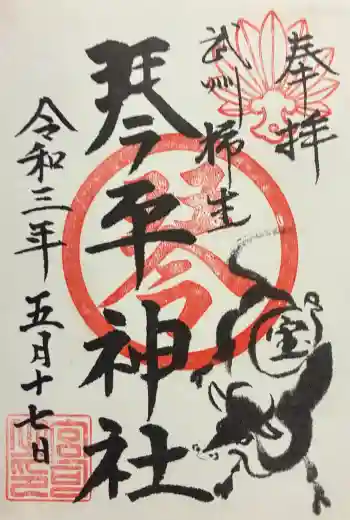 奉拝
武州柿生
琴平神社
令和三年五月十七日
金
宝
宮司之印